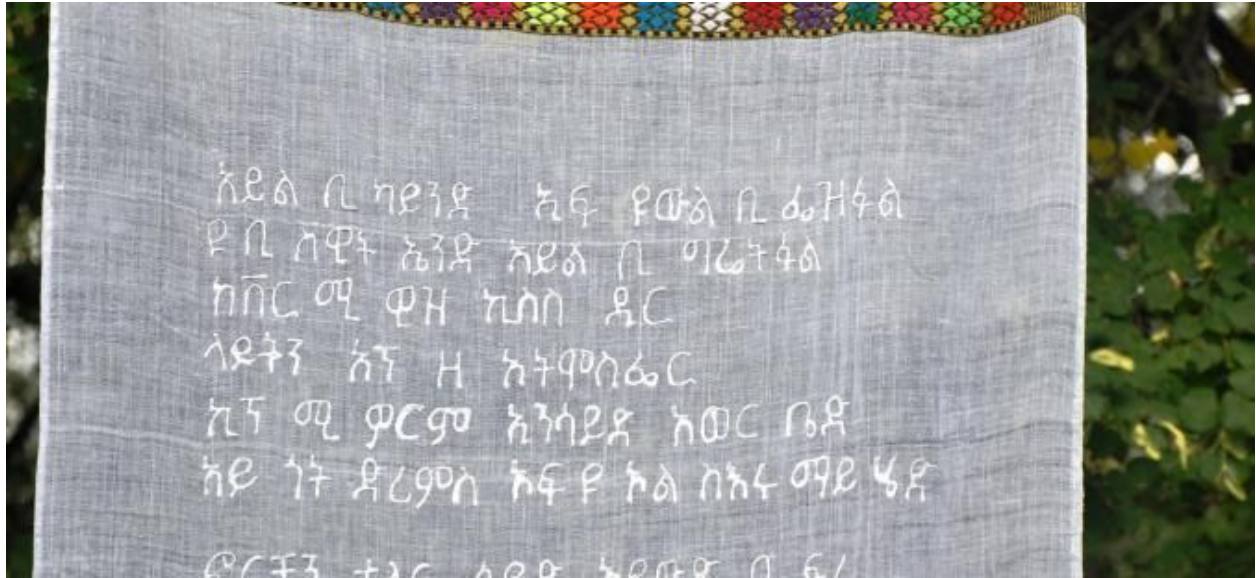 አይል ቢ ካይንድ ኢፍ ዩውል ቢ ፌዝፉል
ዩ ቢ ስዊት ኤንድ አይል ቢ ግሬትፉል
ከቨር ሚ ዊዝ ኪስስ ዲር
ላይትን አፕ ዘ አትሞስፌር
ኪፕ ሚ ዎርም ኢንሳይድ አወር ቤድ
አይ ጎት ድረምስ ኦፍ ዩ ኦል ስእሩ ማይ ሄድ